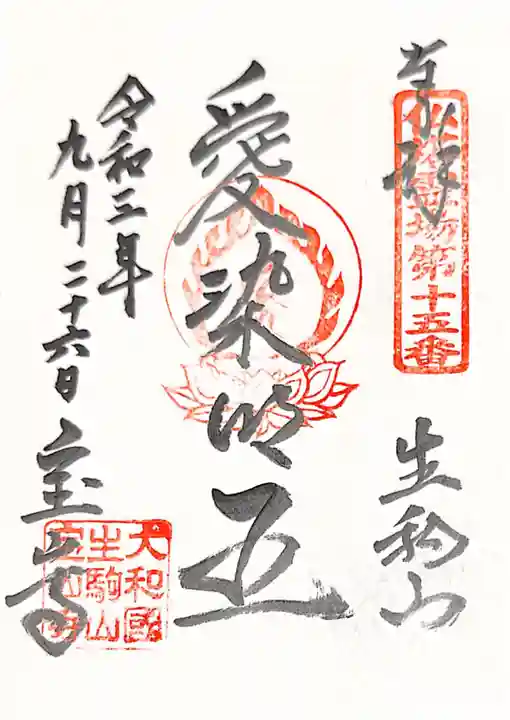 奉拝
仏塔霊場第十五番
生駒山
愛染明王
令和三年
九月二十六日
宝山寺
大和國
生駒山
宝山寺